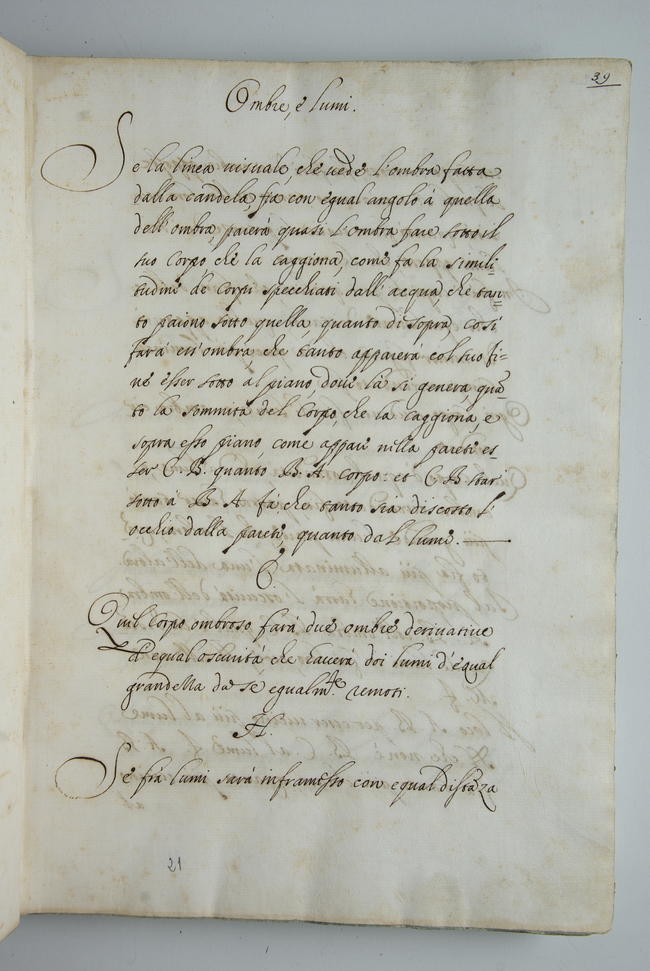 39
Ombre, è lumi.
Se la linea visuale, che vede l'ombra fatta
dalla candela, fia con egual angolo à quella
dell'ombra, parerà quasi l'ombra fare sotto il
suo corpo che la caggiona, come fa la simili-
tudine de corpi specchiati dall'acqua, che tan=
to paiono sotto quella, quanto di sopra, così
farà ess'ombra, che tanto apparerà col suo fi=
ne esser sotto al piano, dove la si genera, quā
to la sommità del corpo, che la caggiona, e
sopra esso piano, come appar nella parete es
ser C. B. quanto B. A. corpo: et C B star
sotto à B A fà che tanto sia discosto l'
occhio dalla parete, quanto dal lume.
G.
Quel corpo ombroso farà due ombre derivative
d'equal oscurità, che haverà doi lumi d'equal
grandezza da se egualm.te remoti.
H.
Se frà lumi sarà inframesso con equal distāza
21